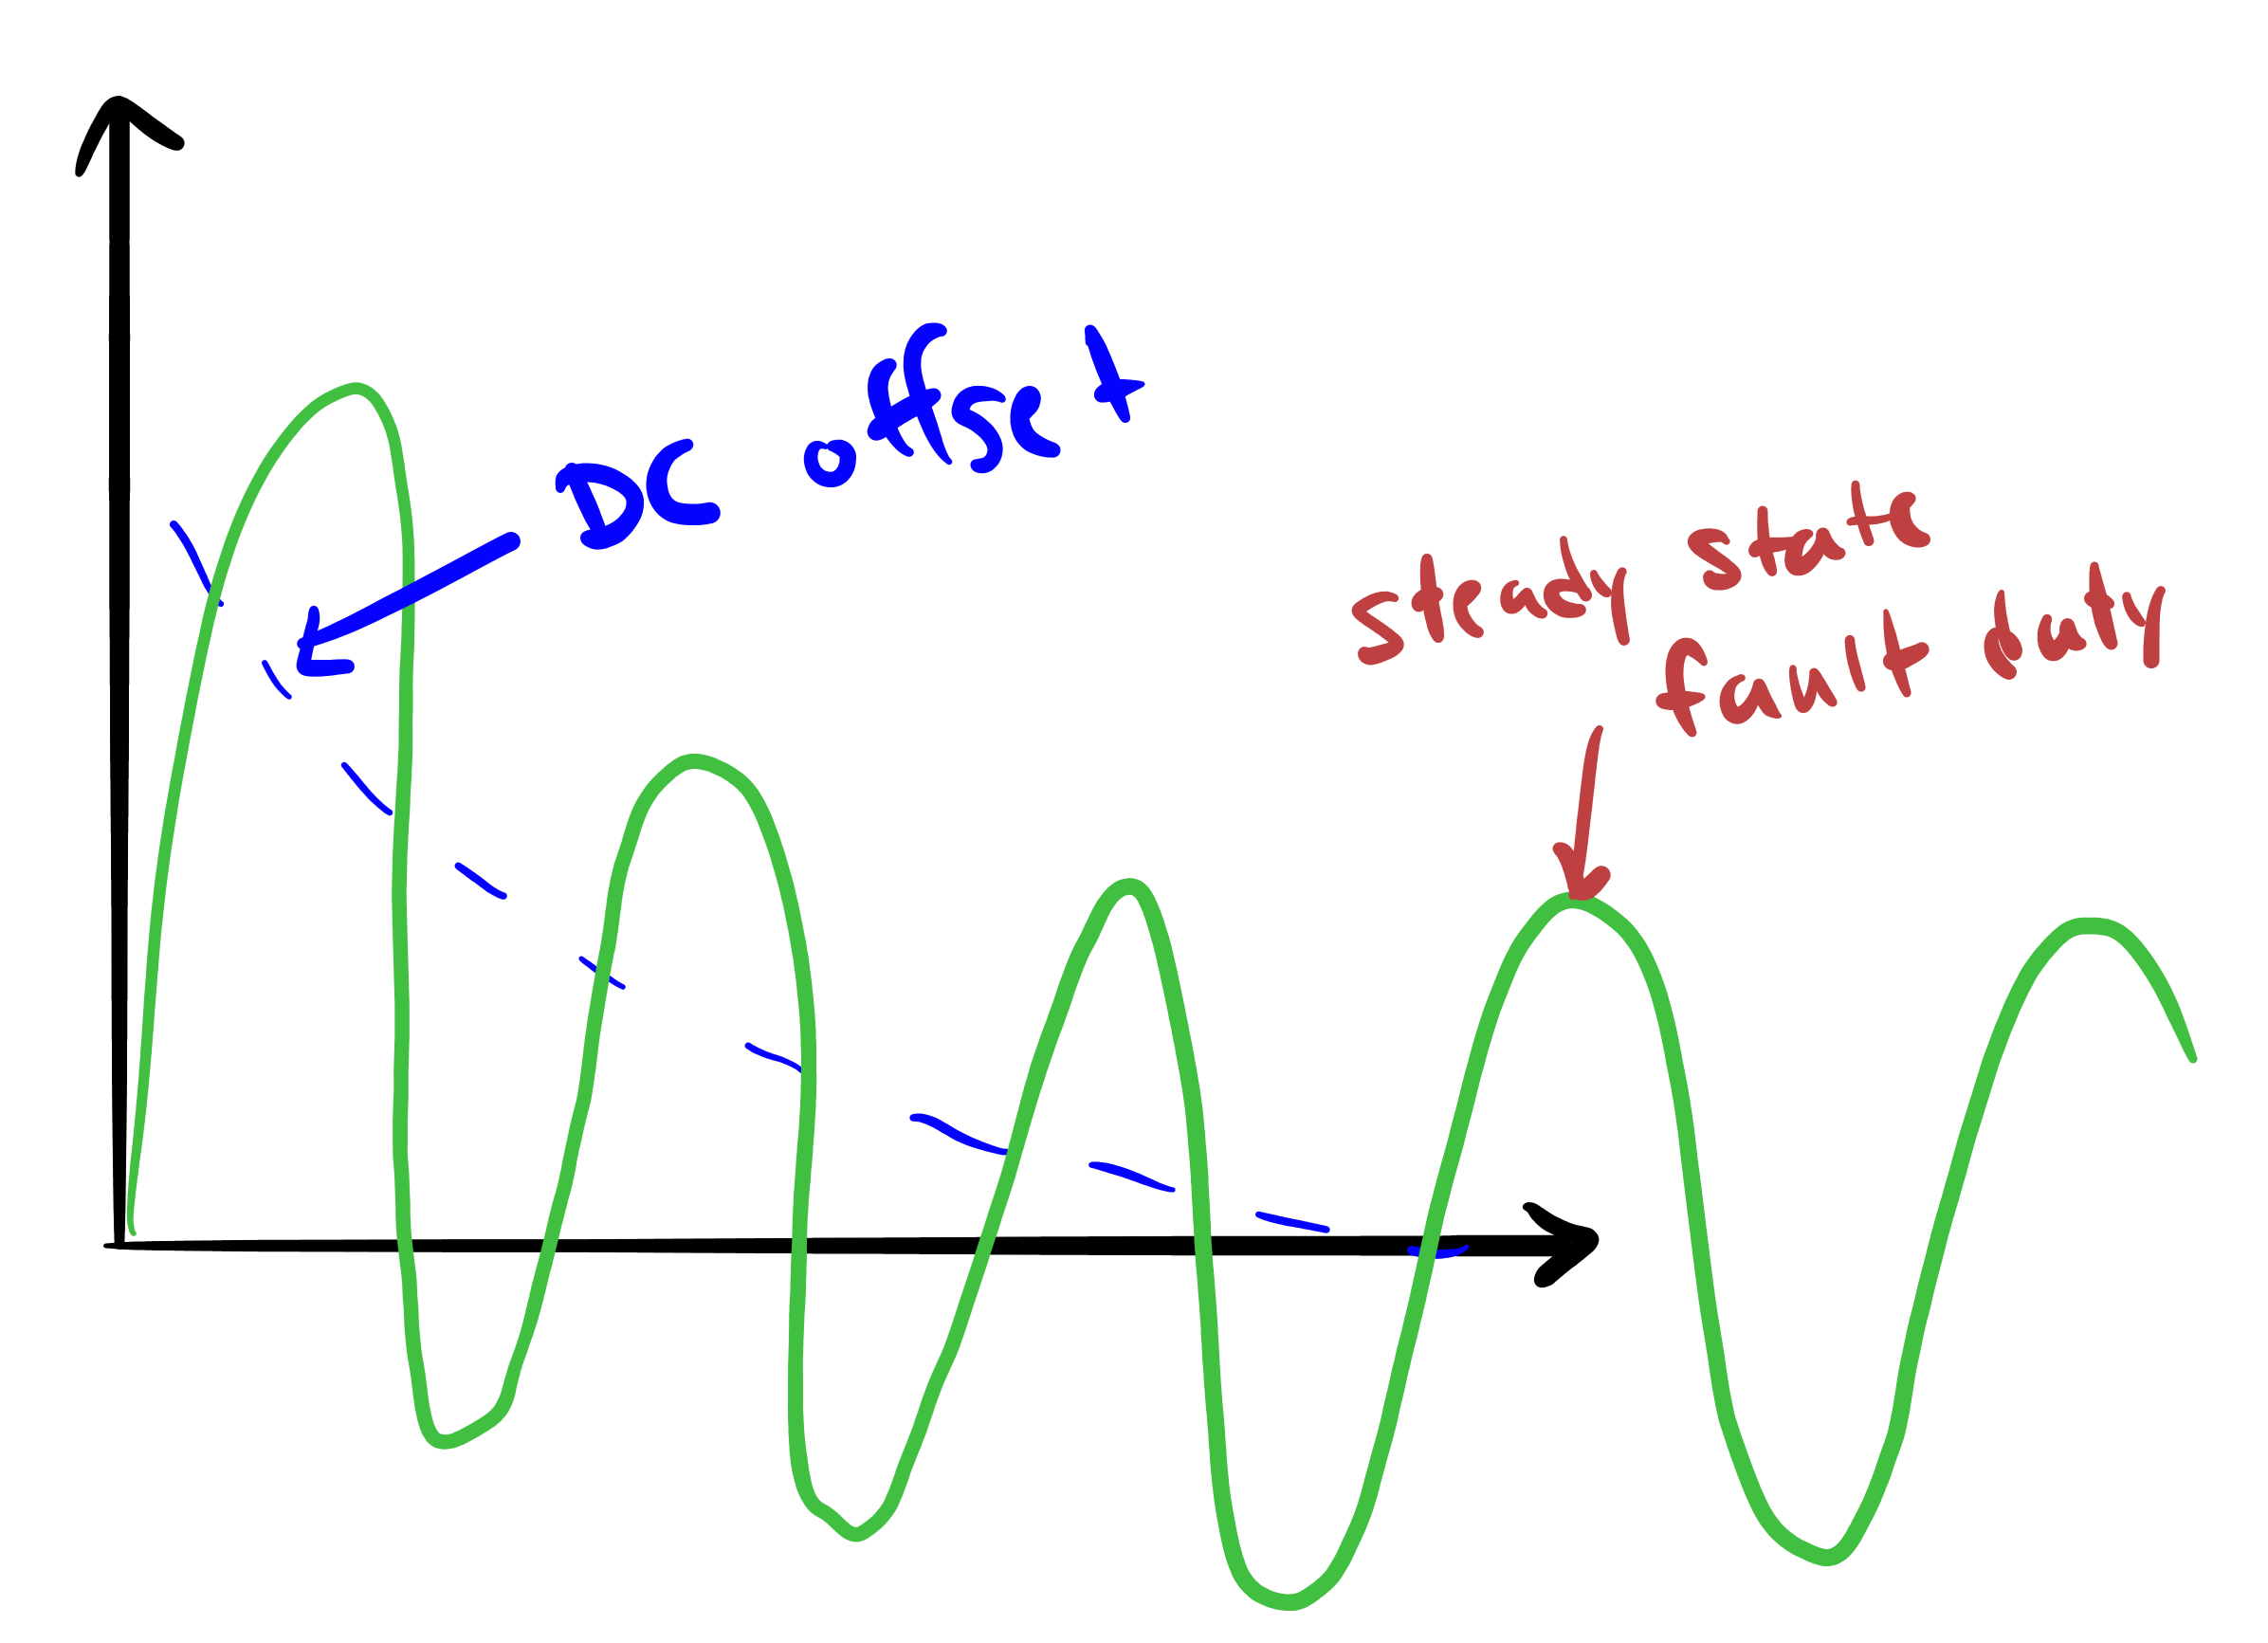 DC offset
steady state
fault duty